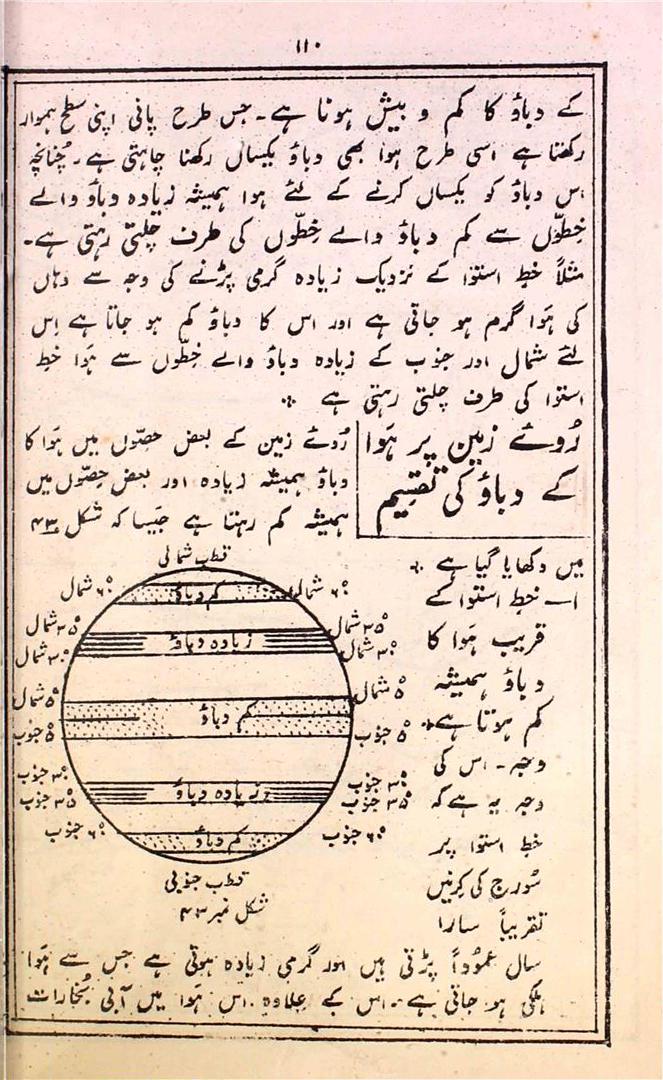 ۱۱۰
کے دباؤ کا کم و بیش ہونا ہے۔ جس طرح پانی اپنی سطح ہموار
رکھتا ہے اسی طرح ہوا بھی دباؤ یکساں رکھنا چاہتی ہے۔ چُنانچہ
اس دباؤ کو یکساں کرنے کے لئے ہوا ہمیشہ زیادہ دباؤ والے
خِطّوں سے کم دباؤ والے خِطّوں کی طرف چلتی رہتی ہے۔
مثلاً خطِ استوا کے نزدیک زیادہ گرمی پڑنے کی وجہ سے وہاں
کی ہَوا گرم ہو جاتی ہے اور اس کا دباؤ کم ہو جاتا ہے اِس
لئے شمال اور جنوب کے زیادہ دباؤ والے خِطّوں سے ہَوا خط
استوا کی طرف چلتی رہتی ہے ۔
رُوئے زمین پر ہَوا
کے دباؤ کی تقسیم
رُوئے زمین کے بعض حِصّوں میں ہَوا کا
دباؤ ہمیشہ زیادہ اور بعض حِصّوں میں
ہمیشہ کم رہتا ہے جَیسا کہ شکل ۴۳
میں دکھایا گیا ہے ۔
۱۔ خطِ استوا کے
قریب ہَوا کا
دباؤ ہمیشہ
کم ہوتا ہے۔
وجہ۔ اس کی
وجہ یہ ہے کہ
خطِ استوا پر
سُورج کی کِرنیں
تقریباً سارا
قطب شمالی
۶۰° شمال
کم دباؤ
۶۰° شمال
۳۵° شمال
۳۰° شمال
زیادہ دباؤ
۳۵° شمال
۳۰° شمال
۵° شمال
کم دباؤ
۵° شمال
۵° جنوب
۵° جنوب
۳۰° جنوب
۳۵° جنوب
زیادہ دباؤ
۳۰° جنوب
۳۵° جنوب
۶۰° جنوب
کم دباؤ
۶۰° جنوب
قطب جنوبی
شکل نمبر ۴۳
سال عموُداً پڑتی ہیں اور گرمی زیادہ ہوتی ہے جس سے ہَوا
ہلکی ہو جاتی ہے۔ اس کے عِلاوہ اس ہَوا میں آبی بُخارات